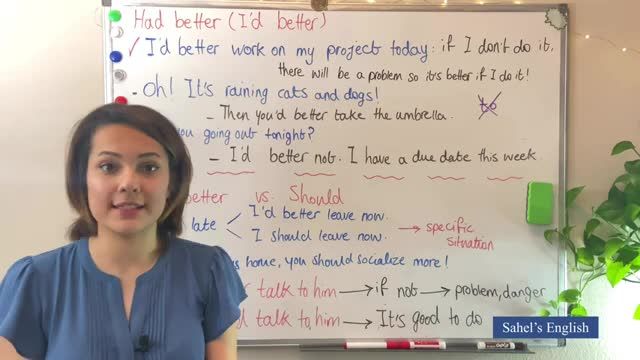 Had better (I'd better)
✓ I'd better work on my project today: if I don't do it,
there will be a problem so it's better if I do it!
- Oh! It's raining cats and dogs!
- Then you'd better take the umbrella.
to
you going out tonight?
- I'd better not. I have a due date this week.
better vs. Should
late < I'd better leave now.
I should leave now. → specific situation
home, you should socialize more!
talk to him → if not → problem, danger
talk to him → It's good to do
Sahel's English